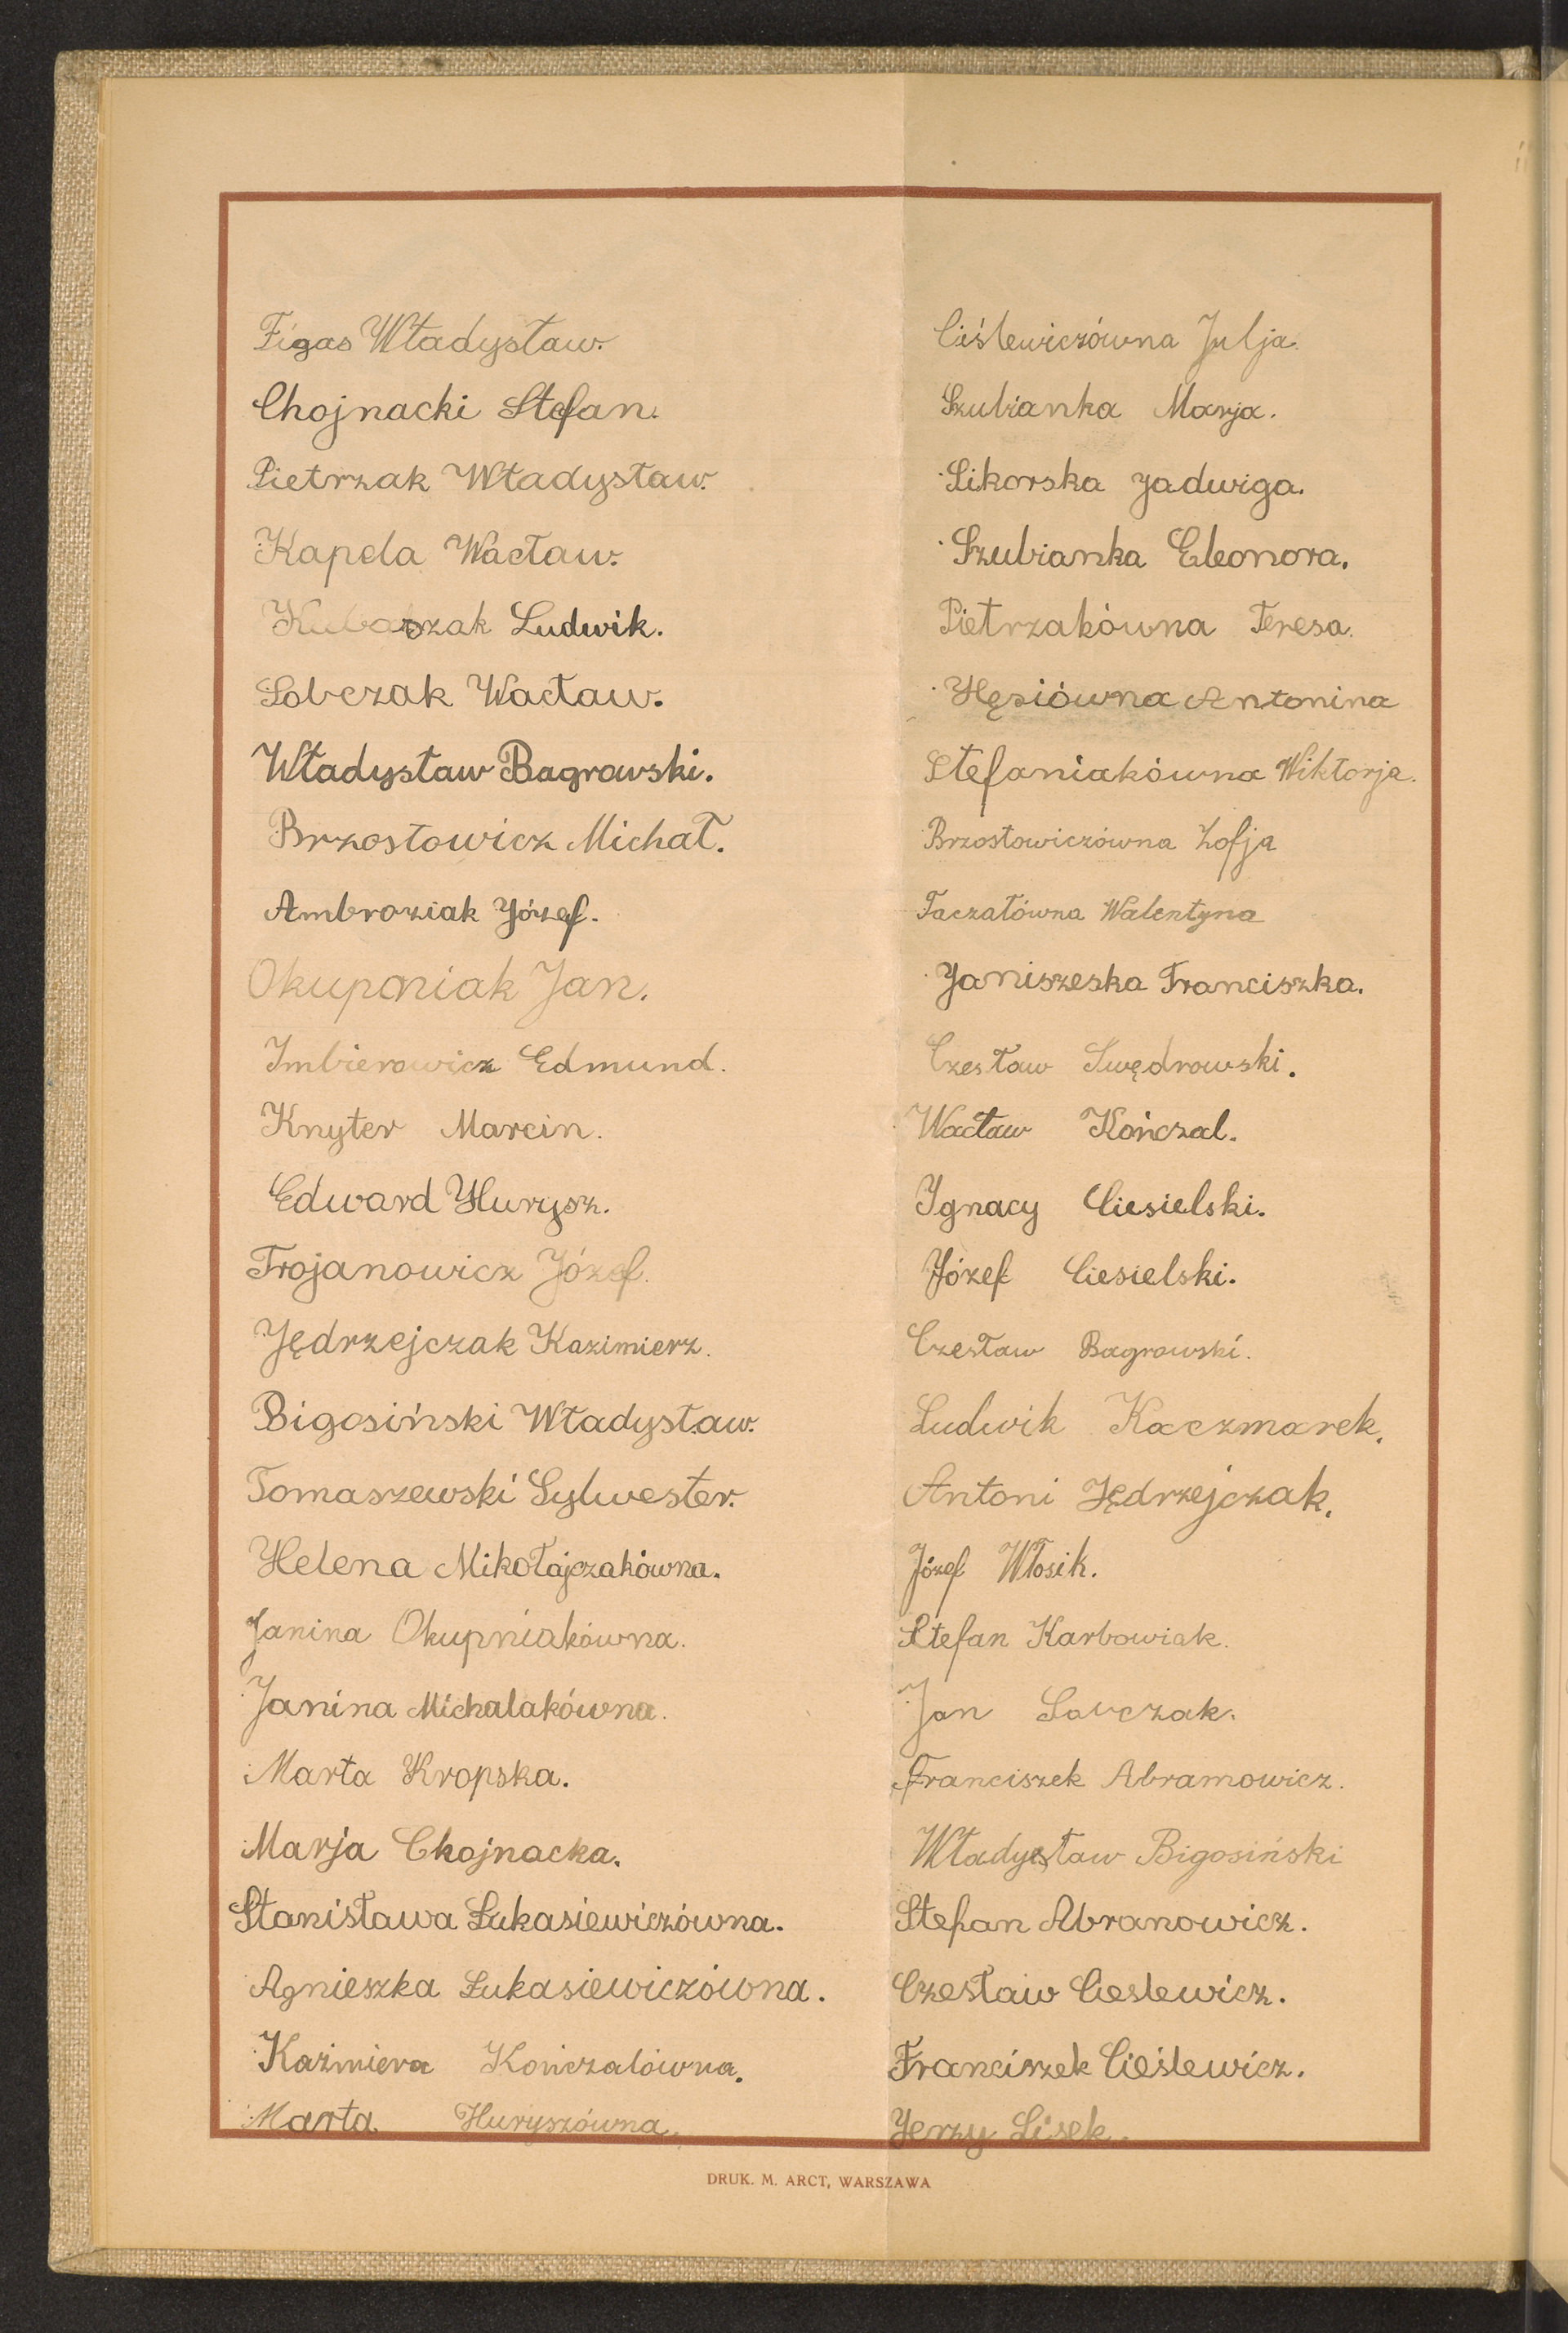 Figas Władysław.
Chojnacki Stefan.
Pietrzak Władysław.
Kapela Wacław.
Kubaszak Ludwik.
Sobczak Wacław.
Władysław Bagrowski.
Brzostowicz Michał.
Ambroziak Józef.
Okupniak Jan.
Imbierowicz Edmund.
Knyter Marcin.
Edward Hurysz.
Trojanowicz Józef.
Jędrzejczak Kazimierz.
Bigosiński Władysław.
Tomaszewski Sylwester.
Helena Mikołajczakówna.
Janina Okupniakówna.
Janina Michalakówna.
Marta Kropska.
Marja Chojnacka.
Stanisława Łukasiewiczówna.
Agnieszka Łukasiewiczówna.
Kaźmiera Kończalówna.
Marta Huryszówna.
Ciślewiczówna Julja.
Szubianka Marja.
Sikorska Jadwiga.
Szubianka Eleonora.
Pietrzakówna Teresa.
Hęsiówna Antonina
Stefaniakówna Wiktorja.
Brzostowiczówna Zofja
Taczałówna Walentyna
Janiszeska Franciszka.
Czesław Swędrowski.
Wacław Kończal.
Ignacy Ciesielski.
Józef Ciesielski.
Czesław Bagrowski.
Ludwik Kaczmarek.
Antoni Jędrzejczak.
Józef Włosik.
Stefan Karbowiak.
Jan Sobczak.
Franciszek Abramowicz.
Władysław Bigosiński
Stefan Abranowicz.
Czesław Cieslewicz.
Franciszek Cieślewicz.
Jerzy Lisek.
DRUK. M. ARCT, WARSZAWA